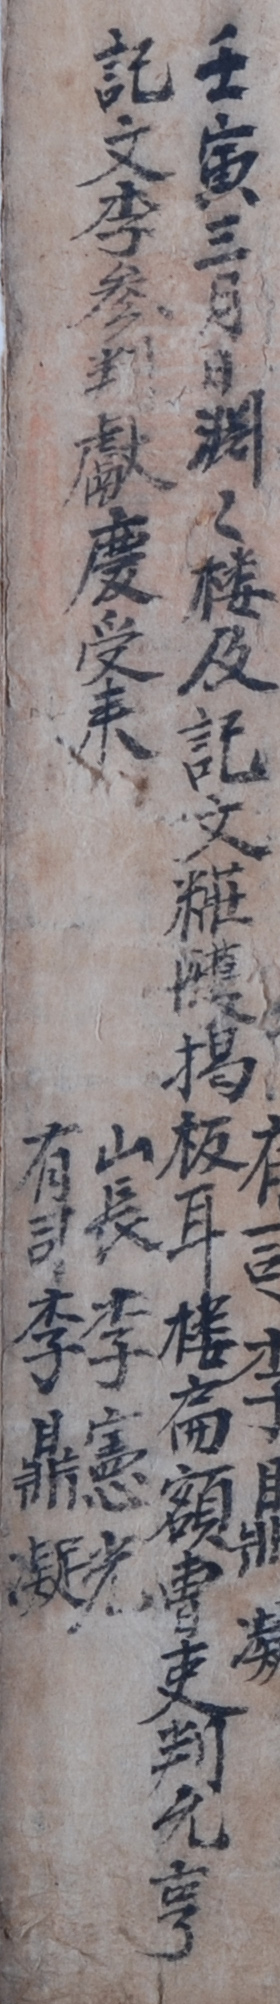 有司李鼎凝
壬寅三月日淵〻樓及記文粧䌙揭板耳樓扁額曺吏判允亨
記文李參判獻慶受来
山長李憲光
有司李鼎凝